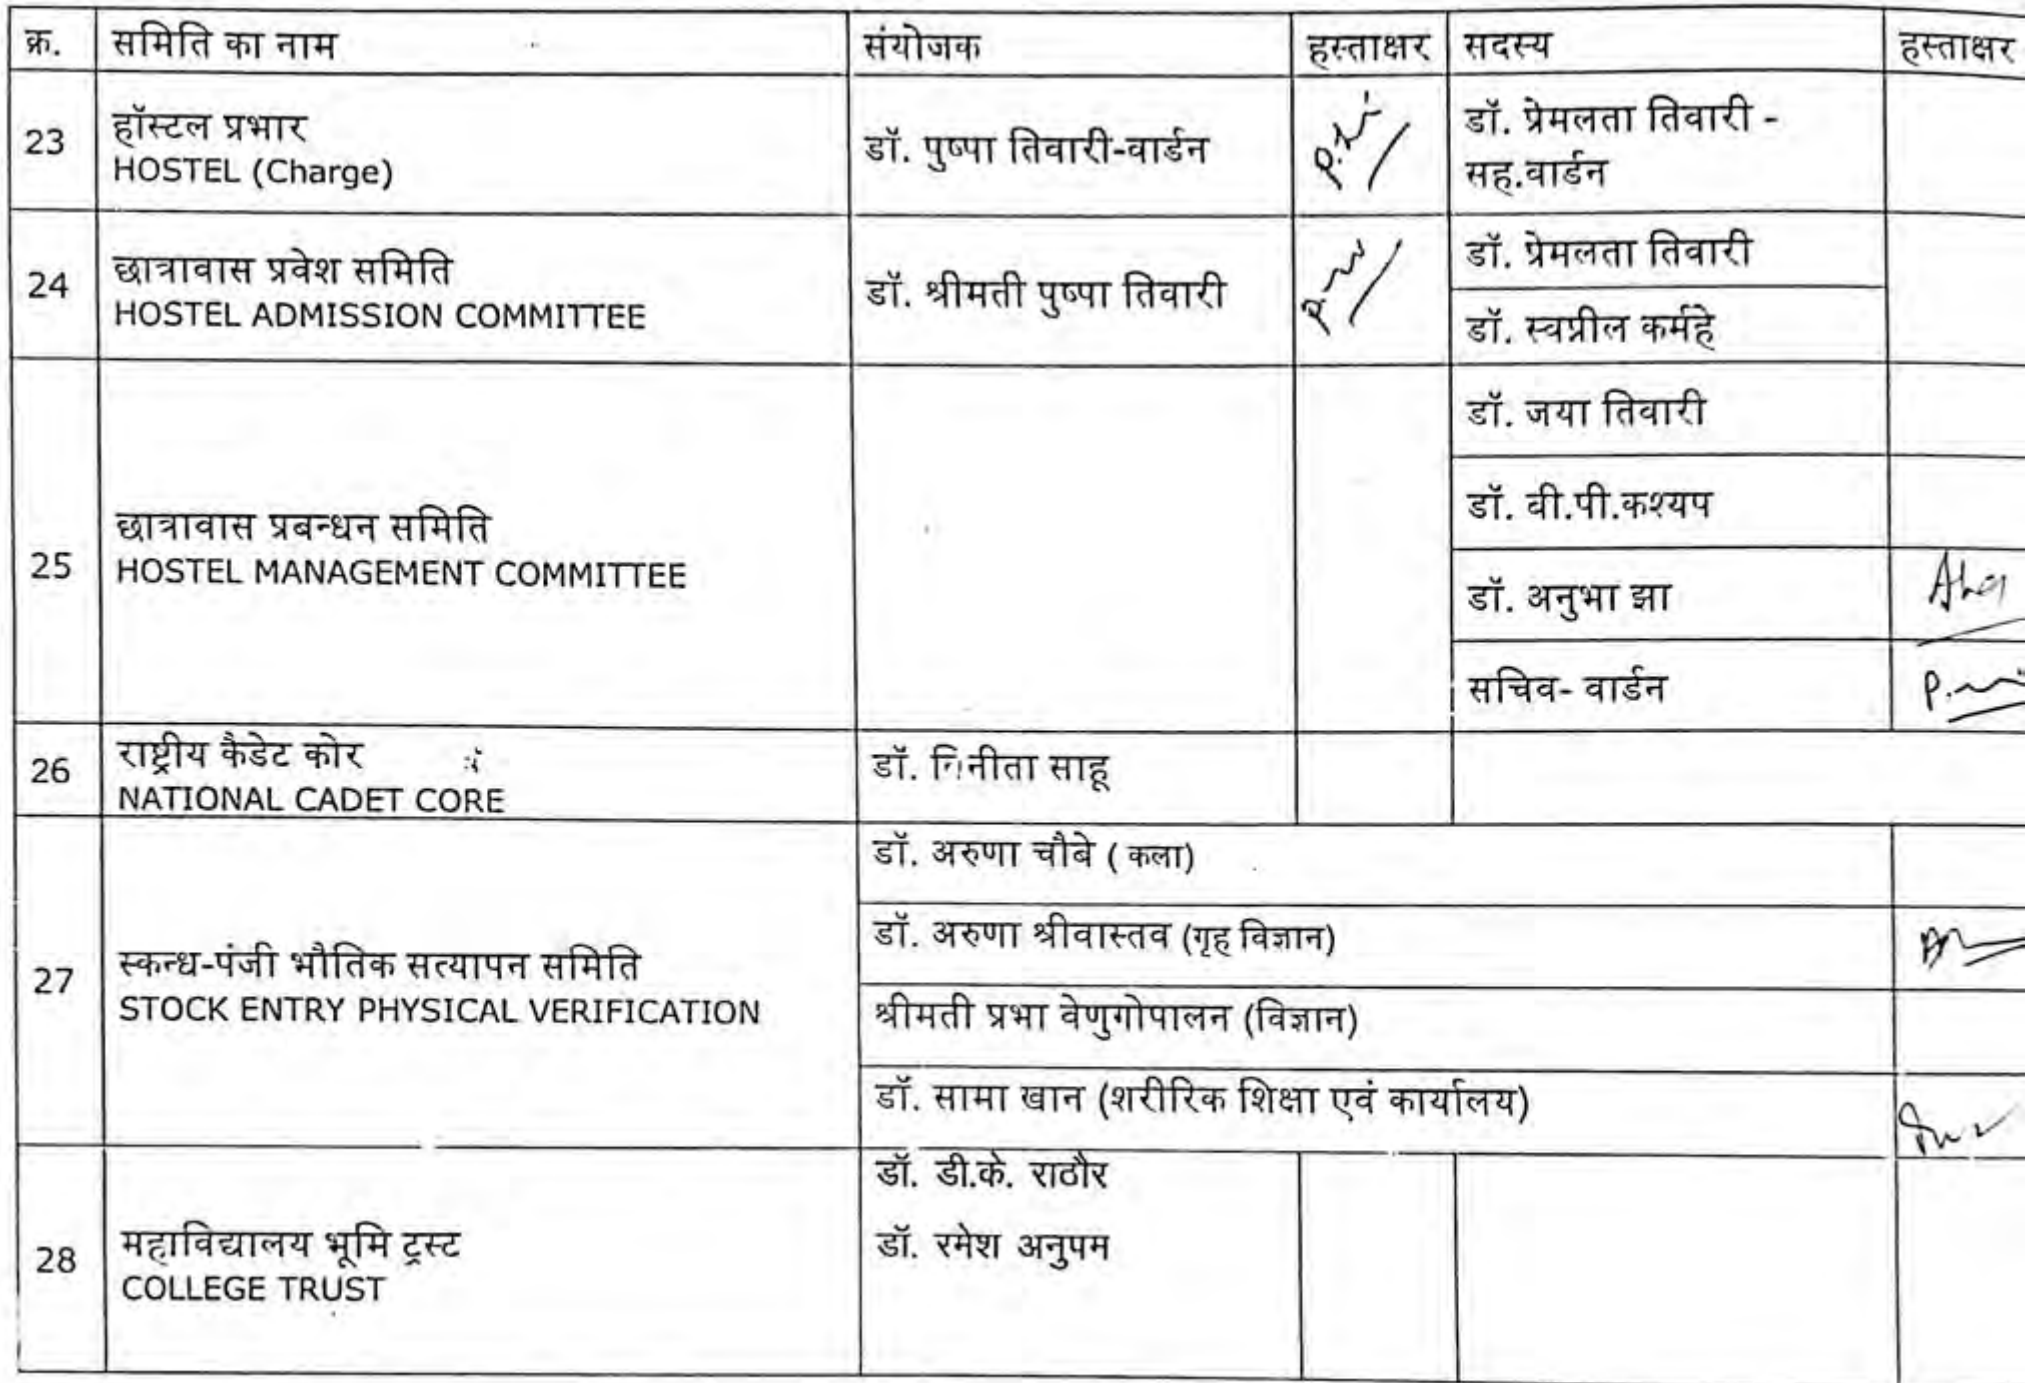 क्र. समिति का नाम संयोजक हस्ताक्षर सदस्य हस्ताक्षर
23 हॉस्टल प्रभार
HOSTEL (Charge)
डॉ. पुष्पा तिवारी-वार्डन
डॉ. प्रेमलता तिवारी -
सह.वार्डन
24 छात्रावास प्रवेश समिति
HOSTEL ADMISSION COMMITTEE
डॉ. श्रीमती पुष्पा तिवारी
डॉ. प्रेमलता तिवारी
डॉ. स्वप्नील कर्महे
25 छात्रावास प्रबन्धन समिति
HOSTEL MANAGEMENT COMMITTEE
डॉ. जया तिवारी
डॉ. वी.पी.कश्यप
डॉ. अनुभा झा
सचिव- वार्डन
26 राष्ट्रीय कैडेट कोर
NATIONAL CADET CORE
डॉ. साहू
27 स्कन्ध-पंजी भौतिक सत्यापन समिति
STOCK ENTRY PHYSICAL VERIFICATION
डॉ. अरुणा चौबे ( कला)
डॉ. अरुणा श्रीवास्तव (गृह विज्ञान)
श्रीमती प्रभा वेणुगोपालन (विज्ञान)
डॉ. सामा खान (शरीरिक शिक्षा एवं कार्यालय)
28 महाविद्यालय भूमि ट्रस्ट
COLLEGE TRUST
डॉ. डी.के. राठौर
डॉ. रमेश अनुपम